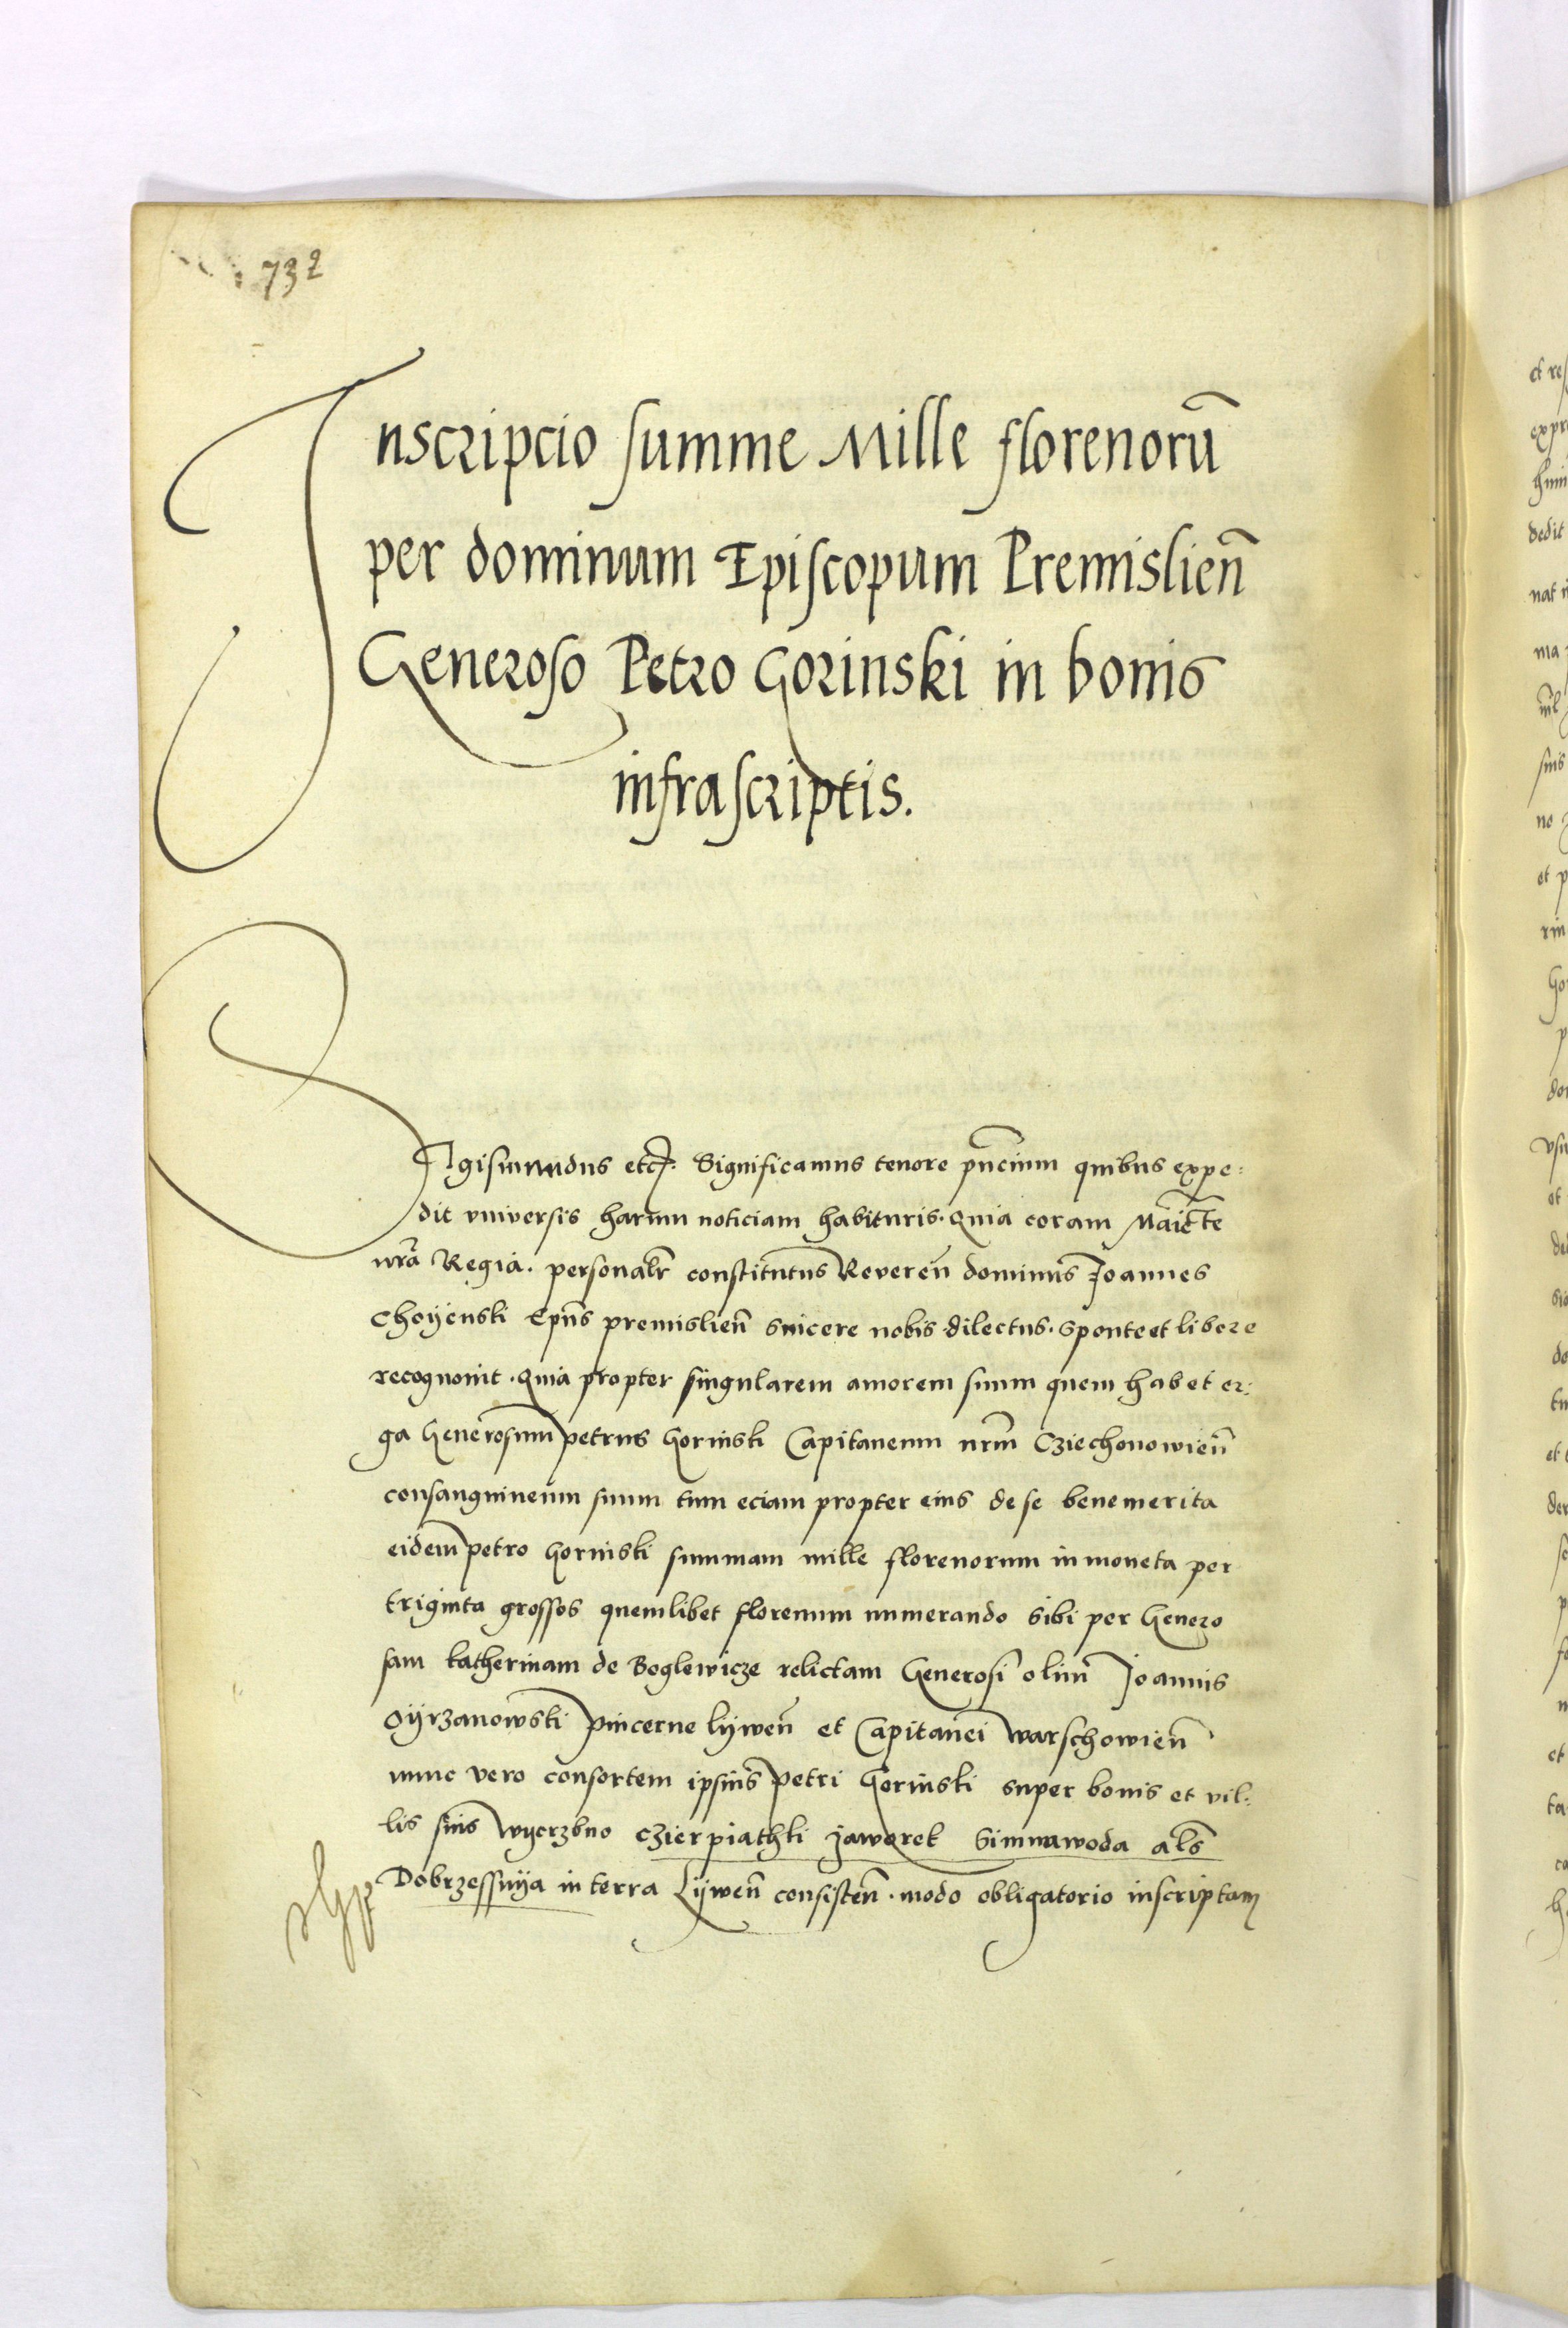 732
Inscripcio summe Mille florenorū
per dominum Episcopum Premislien̄
Generoso Petro Gorinski in bonis
infrascriptis.
Sigismundus etc. Significamus tenore pn̄cium quibus expe:
dit vniversis harum noticiam habituris. Quia coram Maiēte
nrā Regia. personalr̄ constitutus Reveren̄ dominus Joannes
Choyenski Epūs premislien̄ sincere nobis dilectus. sponte et libere
recognovit. Quia propter singularem amorem suum quem habet er:
ga Generosum petrus Gorinski Capitaneum nrm̄ Cziechonowien̄
consanguineum suum tum eciam propter eius de se benemerita
eidem petro Gorinski summam mille florenorum in moneta per
triginta grossos quemlibet florenum numerando sibi per Genero
sam katherinam de Boglewicze relictam Generosi olim Joannis
Oÿrzanowski pincerne lÿwen̄ et Capitanei warschowien̄
nunc vero consortem ipsius petri Gorinski super bonis et vil:
lis suis wyerzbno Czierpiathki jaworek Simnawoda als̄
Dobrzessnÿa in terra Lÿwen̄ consisten̄. modo obligatorio inscriptam